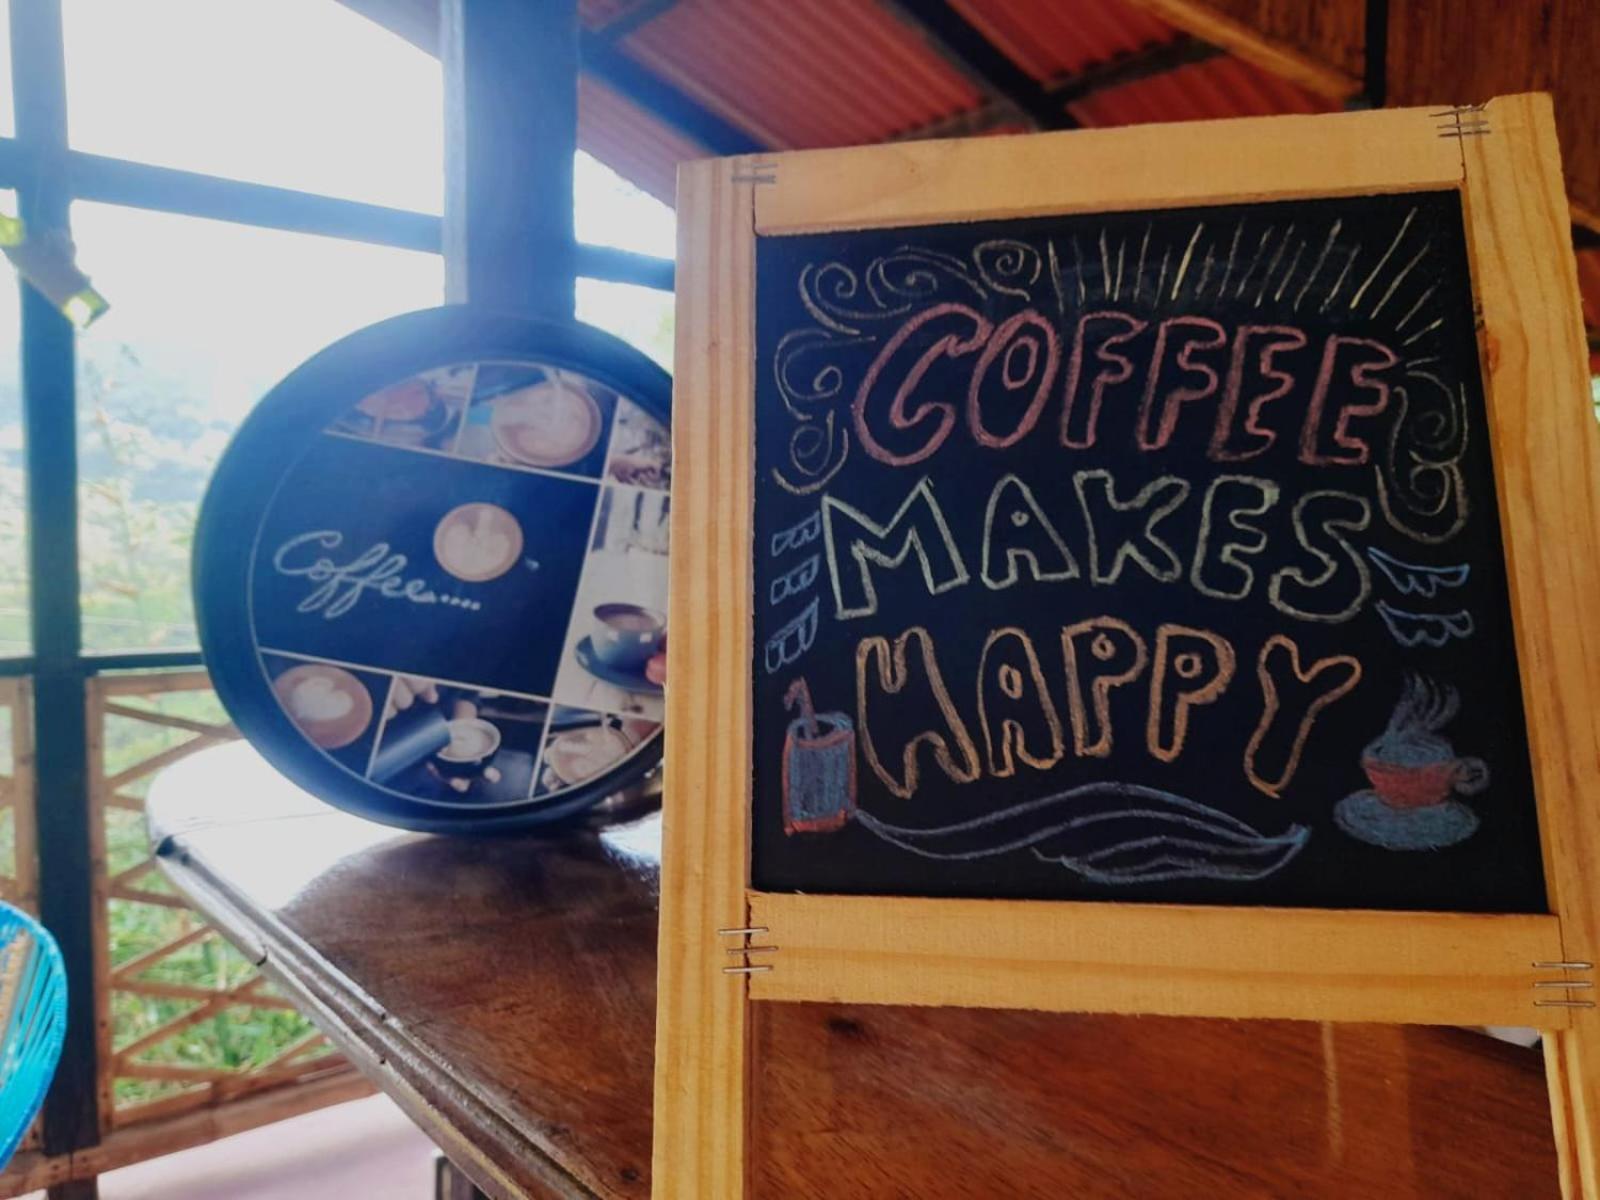 Coffee....
COFFEE
MAKES
HAPPY